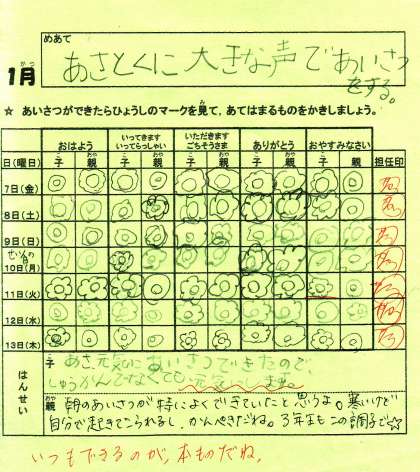 めあて
1月
がつ
あさとくに大きな声であいさつ
をする。
☆ あいさつができたらひょうしのマークを見て，あてはまるものをかきましょう。
おはよう
いってきます
いってらっしゃい
いただきます
ごちそうさま
ありがとう
おやすみなさい
日(曜日) 子 親 子 親 子 親 子 親 子 親 担任印
7日(金)
8日(土)
9日(日)
せい人の
10日(月)
11日(火)
12日(水)
13日(木)
はんせい
子 あさ元気にあいさつできたので、
しゅうかんでなくても、元気にします。
親 朝のあいさつが特によくできていたと思うよ。寒いけど
自分で起きてこられるし、かんぺきだね。3年生もこの調子で☆
いつもできるのが、本ものだね。